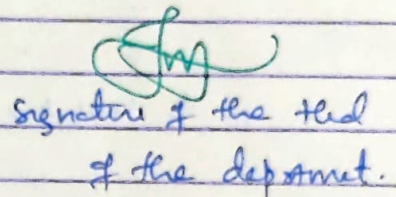 Signature of the Head
of the departmet.